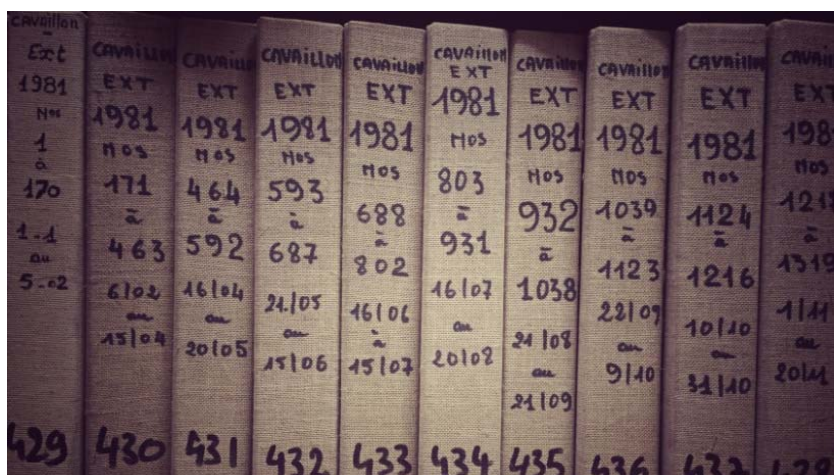 Cavaillon
Ext
1981
Nos
1
à
170
1-1
au
5-02
429
CAVAILLON
EXT
1981
NOS
171
à
463
6/02
au
15/04
430
CAVAILLON
EXT
1981
NOS
464
à
592
16/04
au
20/05
431
CAVAILLON
EXT
1981
NOS
593
à
687
21/05
au
15/06
432
CAVAILLON
EXT
1981
NOS
688
à
802
16/06
à
15/07
433
CAVAILLON
EXT
1981
NOS
803
à
931
16/07
au
20/08
434
CAVAILLON
EXT
1981
NOS
932
à
1038
21/08
au
21/09
435
CAVAILLON
EXT
1981
NOS
1039
à
1123
22/09
au
9/10
636
CAVAILLON
EXT
1981
NOS
1124
à
1216
10/10
au
31/10
EXT
198
NOS
à
1319
1/11
au
20/11